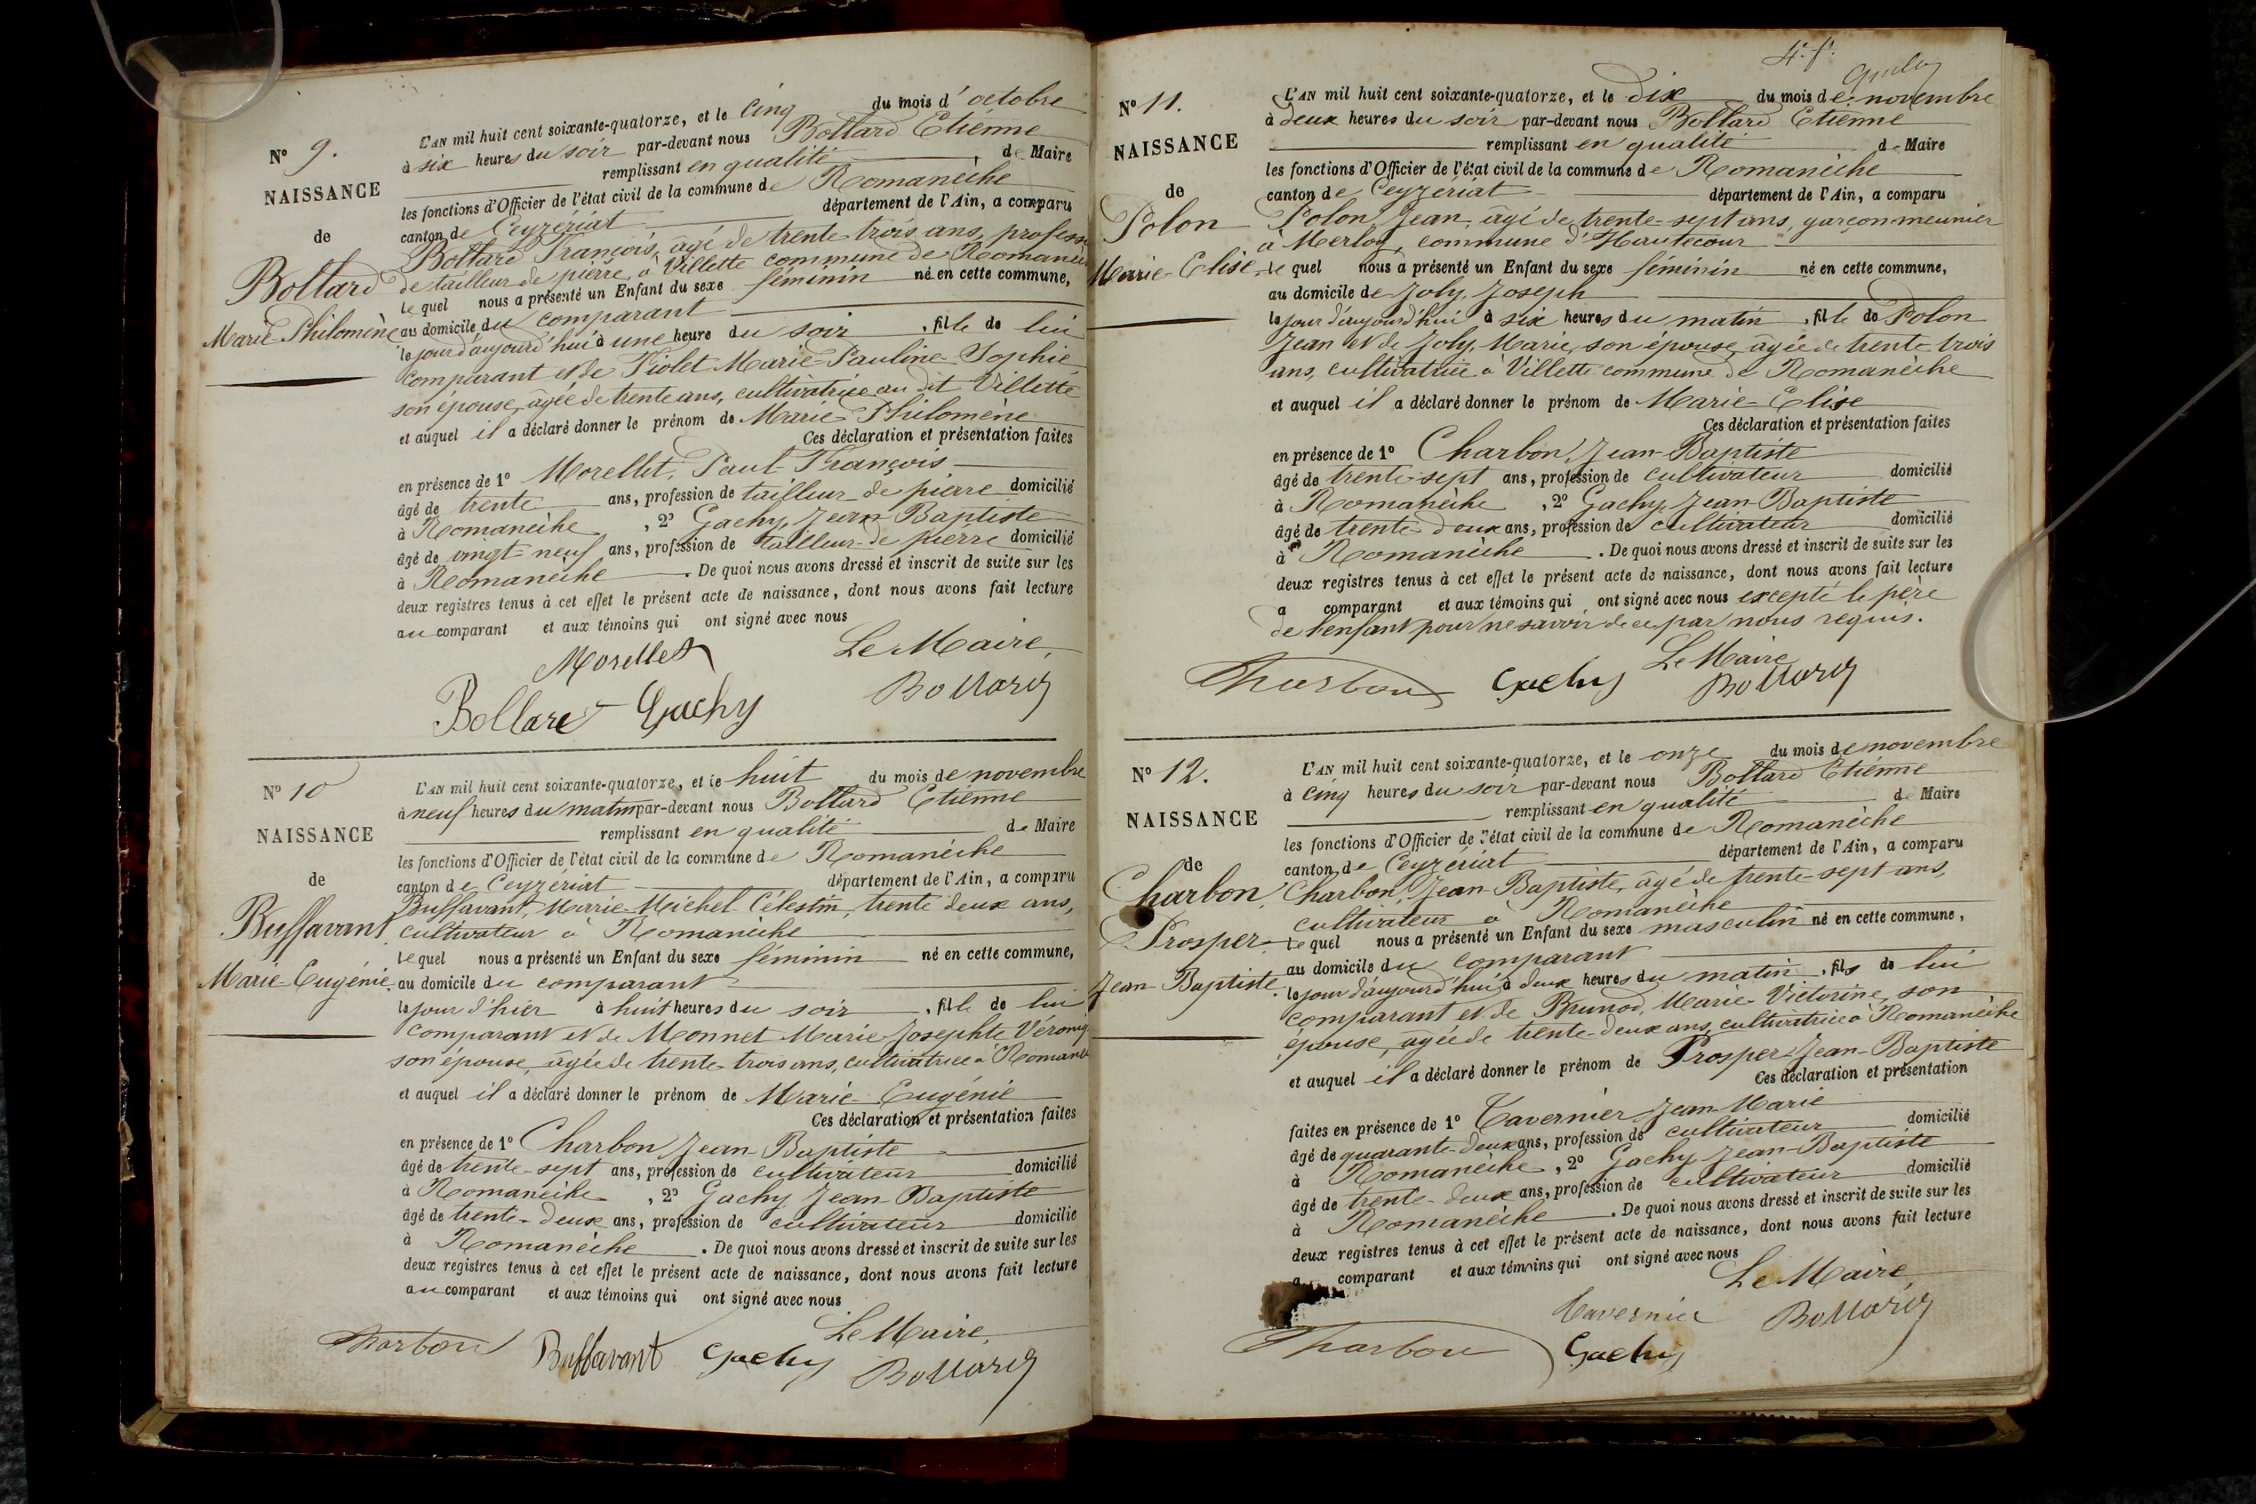 N° 9.
NAISSANCE
de
Bollard
Marie-Philomène
L'AN mil huit cent soixante-quatorze, et le Cinq du mois d'octobre
à six heures du soir par-devant nous Bollard Etienne
remplissant en qualité de Maire
les fonctions d'Officier de l'état civil de la commune de Romanèche
canton de Ceyzériat département de l'Ain, a comparu
Bollard François, âgé de trente trois ans, profession
de tailleur de pierre, à Villette commune de Romanèche
lequel nous a présenté un Enfant du sexe féminin né en cette commune,
au domicile du comparant
le jour d'aujourd'hui à une heure du soir, fille de lui
comparant et de Violet Marie-Pauline-Sophie
son épouse, agée de trente ans, cultivatrice au dit Villette
et auquel il a déclaré donner le prénom de Marie-Philomène
Ces déclaration et présentation faites
en présence de 1° Morellet, Paul-François
âgé de trente ans, profession de tailleur de pierre domicilié
à Romanèche, 2° Gachy, Jean-Baptiste
âgé de vingt-neuf ans, profession de tailleur de pierre domicilié
à Romanèche. De quoi nous avons dressé et inscrit de suite sur les
deux registres tenus à cet effet le présent acte de naissance, dont nous avons fait lecture
au comparant et aux témoins qui ont signé avec nous
Le Maire,
Morellet
Bollard Gachy Bollard
N° 10
NAISSANCE
de
Buffavant
Marie-Eugénie
L'AN mil huit cent soixante-quatorze, et le huit du mois de novembre
à neuf heures du matin par-devant nous Bollard Etienne
remplissant en qualité de Maire
les fonctions d'Officier de l'état civil de la commune de Romanèche
canton de Ceyzériat département de l'Ain, a comparu
Buffavant, Marie-Michel-Célestin, trente deux ans,
cultivateur à Romanèche
lequel nous a présenté un Enfant du sexe féminin né en cette commune,
au domicile du comparant
le jour d'hier à huit heures du soir, fille de lui
comparant et de Monnet Marie Josephte Véroniq
son épouse, âgée de trente-trois ans, cultivatrice à Romanè
et auquel il a déclaré donner le prénom de Marie-Eugénie
Ces déclaration et présentation faites
en présence de 1° Charbon, Jean-Baptiste
âgé de trente-sept ans, profession de cultivateur domicilié
à Romanèche, 2° Gachy, Jean-Baptiste
âgé de trente-deux ans, profession de cultivateur domicilié
à Romanèche. De quoi nous avons dressé et inscrit de suite sur les
deux registres tenus à cet effet le présent acte de naissance, dont nous avons fait lecture
au comparant et aux témoins qui ont signé avec nous
Le Maire,
Charbon Buffavant Gachy Bollard
4e f.
N° 11.
NAISSANCE
de
Polon
Marie-Elise
L'AN mil huit cent soixante-quatorze, et le dix du mois de novembre
à deux heures du soir par-devant nous Bollard Etienne
remplissant en qualité de Maire
les fonctions d'Officier de l'état civil de la commune de Romanèche
canton de Ceyzériat département de l'Ain, a comparu
Polon Jean, âgé de trente-sept ans, garçon meunier
à Merloz, commune d'Hautecour
lequel nous a présenté un Enfant du sexe féminin né en cette commune,
au domicile de Joly, Joseph
le jour d'aujourd'hui à six heures du matin, fille de Polon
Jean et de Joly, Marie, son épouse, agée de trente-trois
ans, cultivatrice à Villette commune de Romanèche
et auquel il a déclaré donner le prénom de Marie-Elise
Ces déclaration et présentation faites
en présence de 1° Charbon, Jean-Baptiste
âgé de trente-sept ans, profession de cultivateur domicilié
à Romanèche, 2° Gachy, Jean-Baptiste
âgé de trente deux ans, profession de cultivateur domicilié
à Romanèche. De quoi nous avons dressé et inscrit de suite sur les
deux registres tenus à cet effet le présent acte de naissance, dont nous avons fait lecture
a comparant et aux témoins qui ont signé avec nous excepté le père
de l'enfant pour ne savoir de ce par nous requis.
Le Maire
Charbon Gachy Bollard
N° 12.
NAISSANCE
de
Charbon,
Prosper-
Jean-Baptiste.
L'AN mil huit cent soixante-quatorze, et le onze du mois de novembre
à cinq heures du soir par-devant nous Bollard Etienne
remplissant en qualité de Maire
les fonctions d'Officier de l'état civil de la commune de Romanèche
canton de Ceyzériat département de l'Ain, a comparu
Charbon, Jean-Baptiste, âgé de trente-sept ans,
cultivateur à Romanèche
lequel nous a présenté un Enfant du sexe masculin né en cette commune,
au domicile du comparant
le jour d'aujourd'hui à deux heures du matin, fils de lui
comparant et de Brunod, Marie-Victorine, son
épouse, agée de trente-deux ans, cultivatrice à Romanèche
et auquel il a déclaré donner le prénom de Prosper-Jean-Baptiste
Ces déclaration et présentation
faites en présence de 1° Tavernier Jean-Marie
âgé de quarante-deux ans, profession de cultivateur domicilié
à Romanèche, 2° Gachy Jean-Baptiste
âgé de trente-deux ans, profession de cultivateur domicilié
à Romanèche. De quoi nous avons dressé et inscrit de suite sur les
deux registres tenus à cet effet le présent acte de naissance, dont nous avons fait lecture
a comparant et aux témoins qui ont signé avec nous
Le Maire,
Tavernier Bollard
Charbon Gachy